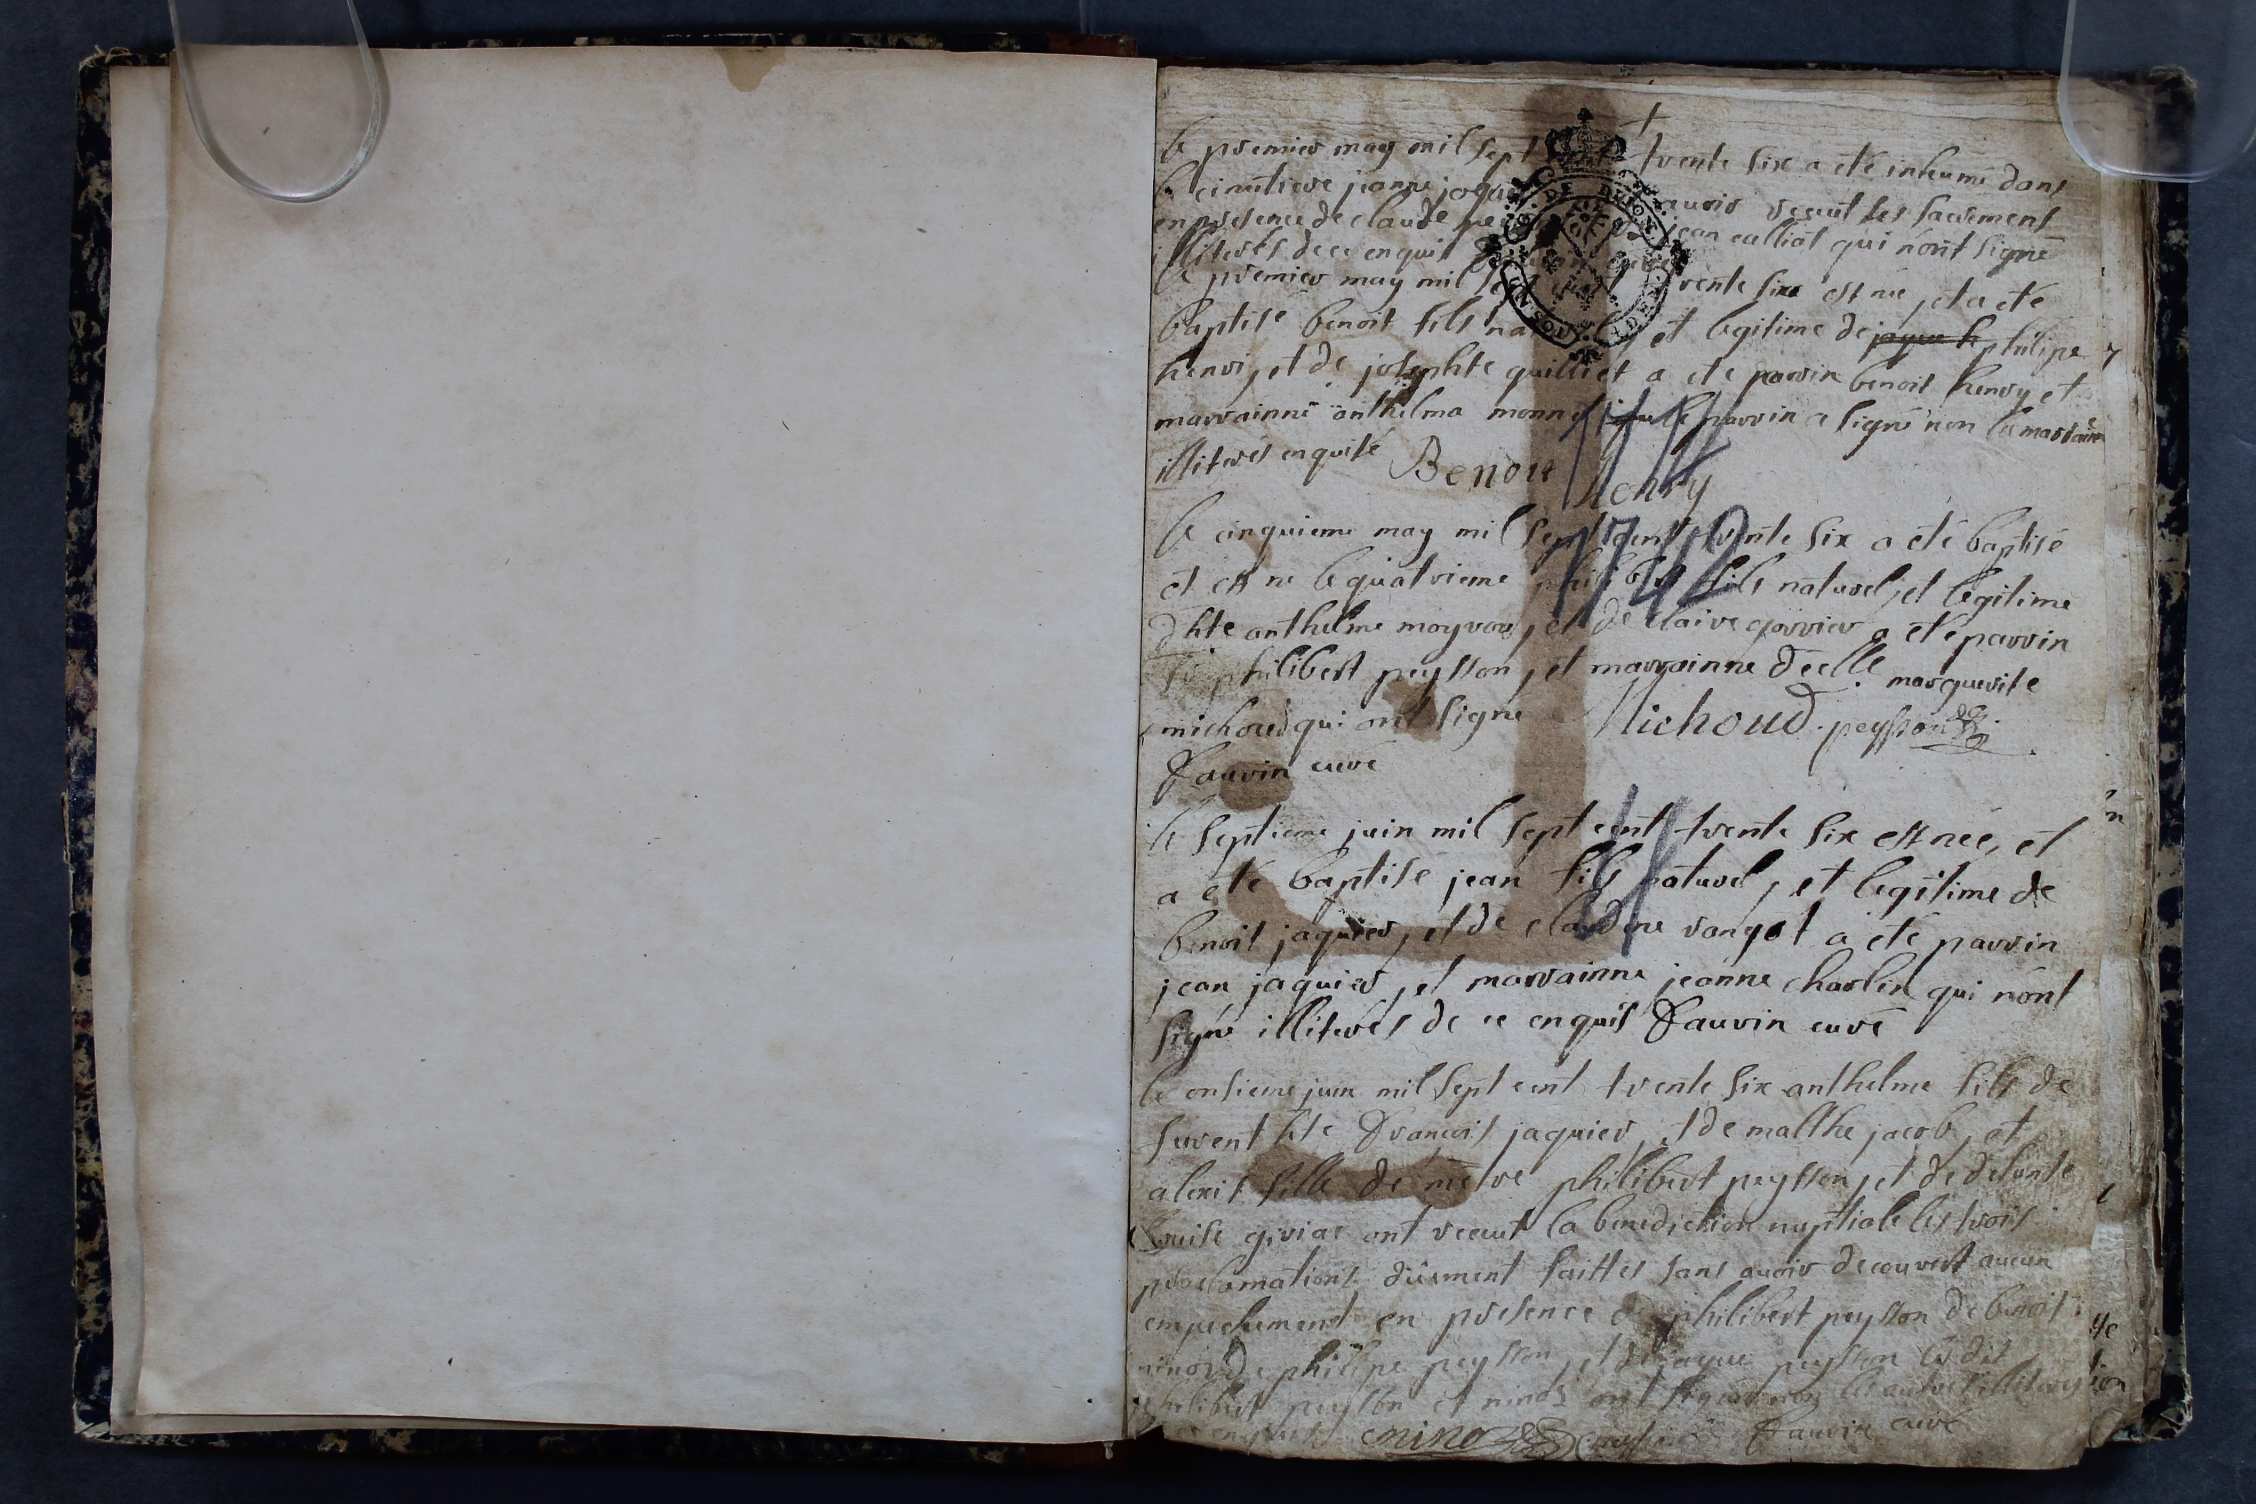 le premier may mil sept cent trente six a été inhumé dans
le cimetiere jeanne avoir receut les sacrement
en presence de claude jean calliat qui nont signé
illiterés de ce enquis
le premier may mil sept cent trente six est née, et a eté
baptisé benoit fils naturel, et legitime de philipe
henry, et de josephte quilliet a ete parrin benoit henry et
marrainne anthelma le parrin a signé non la marraine
illiterés enquise Benoit
henry
le cinquieme may mil sept cent trente six a été baptisé
et est ne le quatrieme philibert fils naturel, et legitime
d hte anthelme et de claire a été parrin
sr philibert peysson, et marrainne delle marguerite
michoud qui ont signe Michoud. peysson
Fauvin curé
le septieme juin mil sept cent trente six est née, et
a eté baptisé jean fils naturel, et legitime de
benoit jaquier, et de claudine vangot a été parrin
jean jaquier, et marrainne jeanne charlin qui nont
signé illiterés de ce enquis Fauvin curé
le onsieme juin mil sept cent trente six anthelme fils de
furent hte François jaquier, et de malthe jacob, et
alexis fille de metre philibert peysson, et de defunte
ont receut la benediction nuptiale les trois
proclamations düement faittes sans avoir decouvert aucun
empechement en presence de philibert peysson de benoit
minoz de philipe peysson, et de jaque peysson les dit
philibert peysson et minoz ont signé non les autres illiterés
de ce enquis minoz Fauvin curé
1742